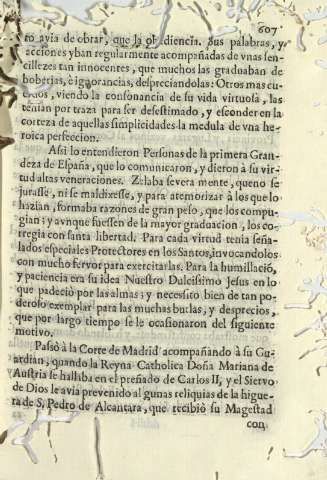 607
ro avia de obrar, que la obediencia. Sus palabras, y
acciones yban regularmente acompañadas de vnas sen-
cillezes tan innocentes, que muchos las graduaban de
boberias, è ignorancias, despreciandolas: Otros mas cu-
erdos, viendo la consonancia de su vida virtuosa, las
tenian por traza para ser desestimado, y esconder en la
corteza de aquellas simplicidades la medula de vna he-
roica perfeccion.
Assi lo entendieron Personas de la primera Gran-
deza de España, que lo comunicaron, y dieron à su vir-
tud altas veneraciones. Zelaba severamente, que no se
jurasse, ni se maldixesse, y para atemorizar à los que lo
hazian, formaba razones de gran peso, que los compu-
gian; y aunque fuessen de la mayor graduacion, los co-
rregia con santa libertad. Para cada virtud tenia seña-
lados especiales Protectores en los Santos, invocandolos
con mucho fervor para exercitarlas. Para la humillaciō,
y paciencia era su idea Nuestro Dulcissimo Jesus en lo
que padeciò por las almas; y necesitò bien de tan po-
deroso exemplar para las muchas burlas, y desprecios,
que por largo tiempo se le ocasionaron del siguiente
motivo.
Passò à la Corte de Madrid acompañando à su Gu-
ardian, quando la Reyna Catholica Doña Mariana de
Austria se hallaba en el preñado de Carlos II, y el Siervo
de Dios le avia prevenido algunas reliquias de la higue-
ra de S. Pedro de Alcantara, que recibiò su Magestad
con